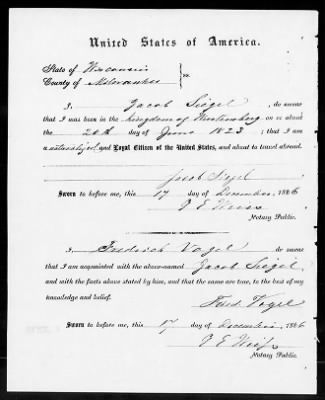 United States of America.
State of Wisconsin
County of Milwaukee } ss:
I, Jacob Siegel, do swear
that I was born in the Kingdom of Wurtemberg on or about
the 20th day of June 1823; that I am
a naturalized and Loyal Citizen of the United States, and about to travel abroad.
Jacob Siegel
Sworn to before me, this 17 day of December, 1886
Notary Public.
I, Frederick Vogel do swear
that I am acquainted with the above-named Jacob Siegel
and with the facts above stated by him, and that the same are true, to the best of my
knowledge and belief.
Fred. Vogel
Sworn to before me, this 17 day of December 1886
Notary Public.